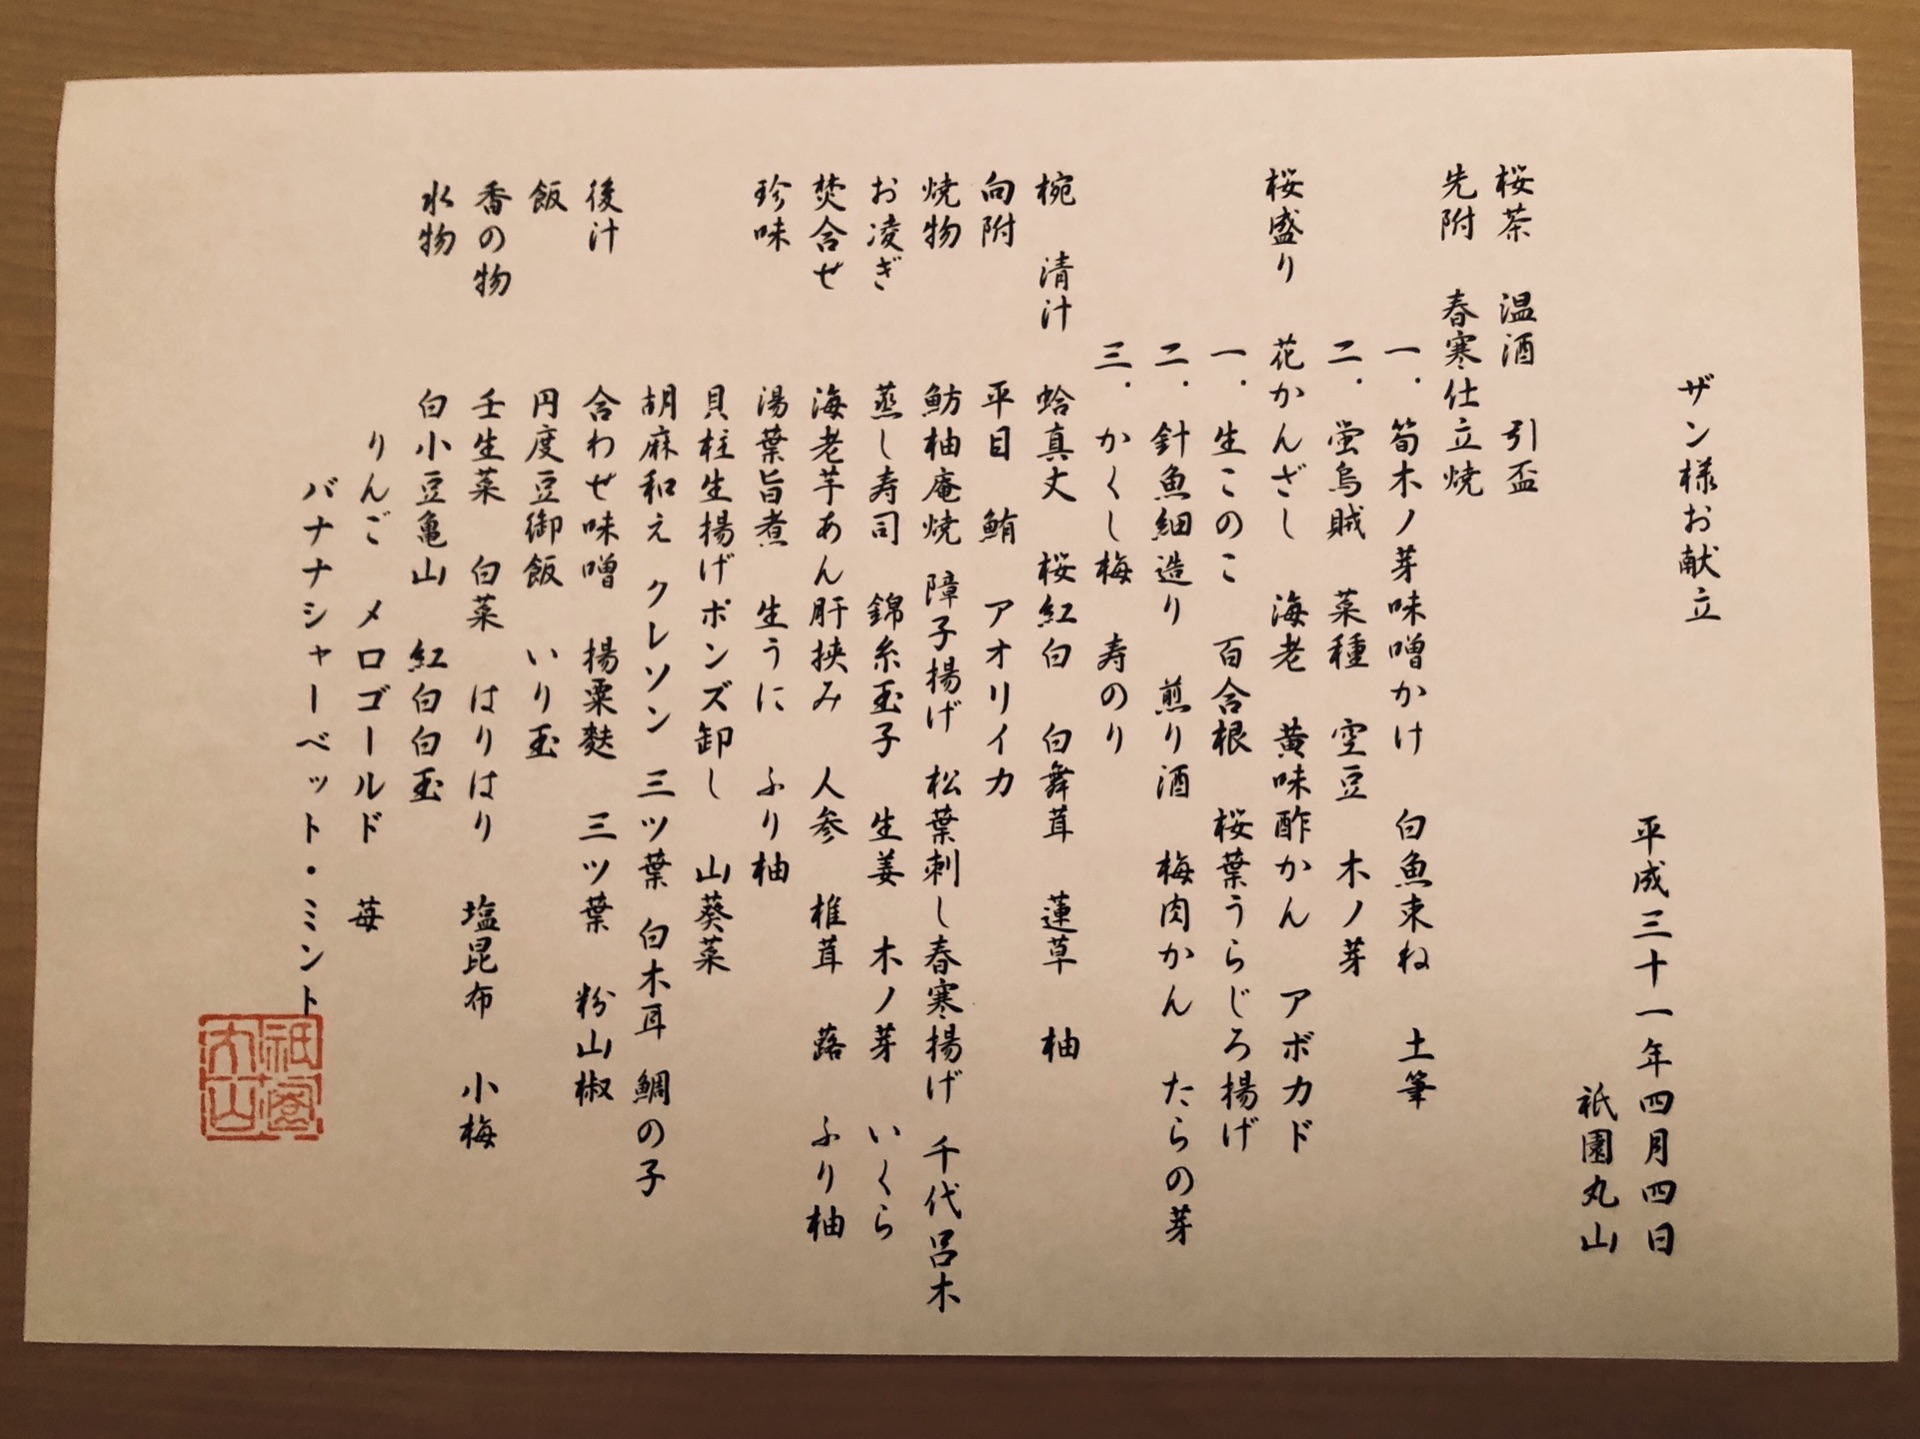 ザン様お献立
平成三十一年四月四日
祇園丸山
桜茶　温酒　引盃
先附　春寒仕立焼
一．筍木ノ芽味噌かけ　白魚束ね　土筆
二．蛍烏賊　菜種　空豆　木ノ芽
桜盛り　花かんざし　海老　黄味酢かん　アボカド
一．生このこ　百合根　桜葉うらじろ揚げ
二．針魚細造り　煎り酒　梅肉かん　たらの芽
三．かくし梅　寿のり
椀　清汁　蛤真丈　桜紅白　白舞茸　蓮草　柚
向附　平目　鮪　アオリイカ
焼物　魴柚庵焼　障子揚げ　松葉刺し春寒揚げ　千代呂木
お凌ぎ　蒸し寿司　錦糸玉子　生姜　木ノ芽　いくら
焚合せ　海老芋あん肝挟み　人参　椎茸　蕗　ふり柚
珍味　湯葉旨煮　生うに　ふり柚
貝柱生揚げポンズ卸し　山葵菜
胡麻和え　クレソン　三ツ葉　白木耳　鯛の子
後汁　合わせ味噌　揚粟麩　三ツ葉　粉山椒
飯　円度豆御飯　いり玉
香の物　壬生菜　白菜　はりはり　塩昆布　小梅
水物　白小豆亀山　紅白白玉
りんご　メロゴールド　苺
バナナシャーベット・ミント
祇園丸山